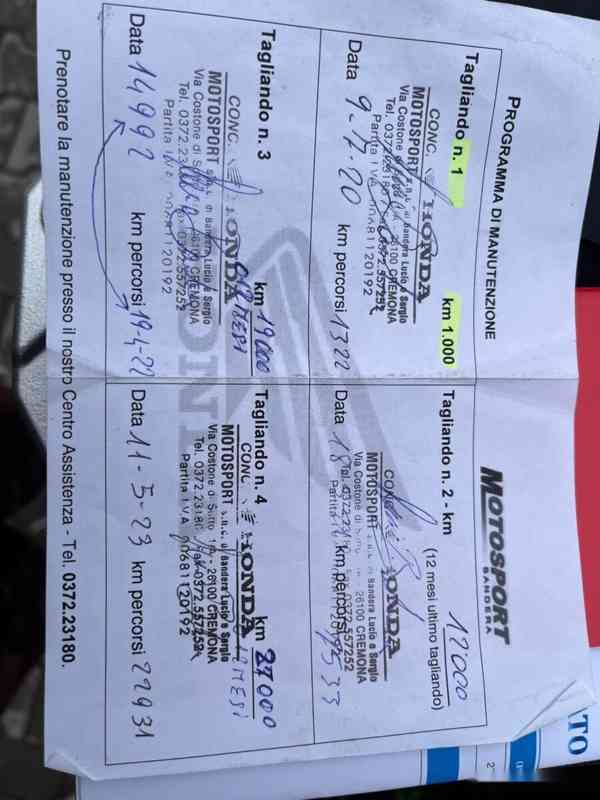 MOTOSPORT
BANDERA
PROGRAMMA DI MANUTENZIONE
Tagliando n. 1 km 1.000
CONC. HONDA
MOTOSPORT s.n.c. di Bandera Lucio e Sergio
Via Costone di 26100 CREMONA
Tel. 0372.23180 0372.557252
Partita I.V.A. 00681120192
Data 9-7-20 km percorsi 1322
Tagliando n. 2 - km 12000
(12 mesi ultimo tagliando)
CONC. HONDA
MOTOSPORT s.n.c. di Bandera Lucio e Sergio
Via Costone di 26100 CREMONA
Tel. 0372.557252
Data 18 km percorsi
Tagliando n. 3 km 19000
MESI
CONC. HONDA
MOTOSPORT s.n.c. di Bandera Lucio e Sergio
Via Costone di 26100 CREMONA
Tel. 0372.23 0372.557252
Partita 120192
Data 14992 km percorsi 19-4-22
Tagliando n. 4 km 27000
MESI
CONC. HONDA
MOTOSPORT s.n.c. di Bandera Lucio e Sergio
Via Costone di Sotto 26100 CREMONA
Tel. 0372.23180 Fax 0372.557252
Partita I.V.A. 00681120192
Data 11-5-23 km percorsi 22931
Prenotare la manutenzione presso il nostro Centro Assistenza - Tel. 0372.23180.